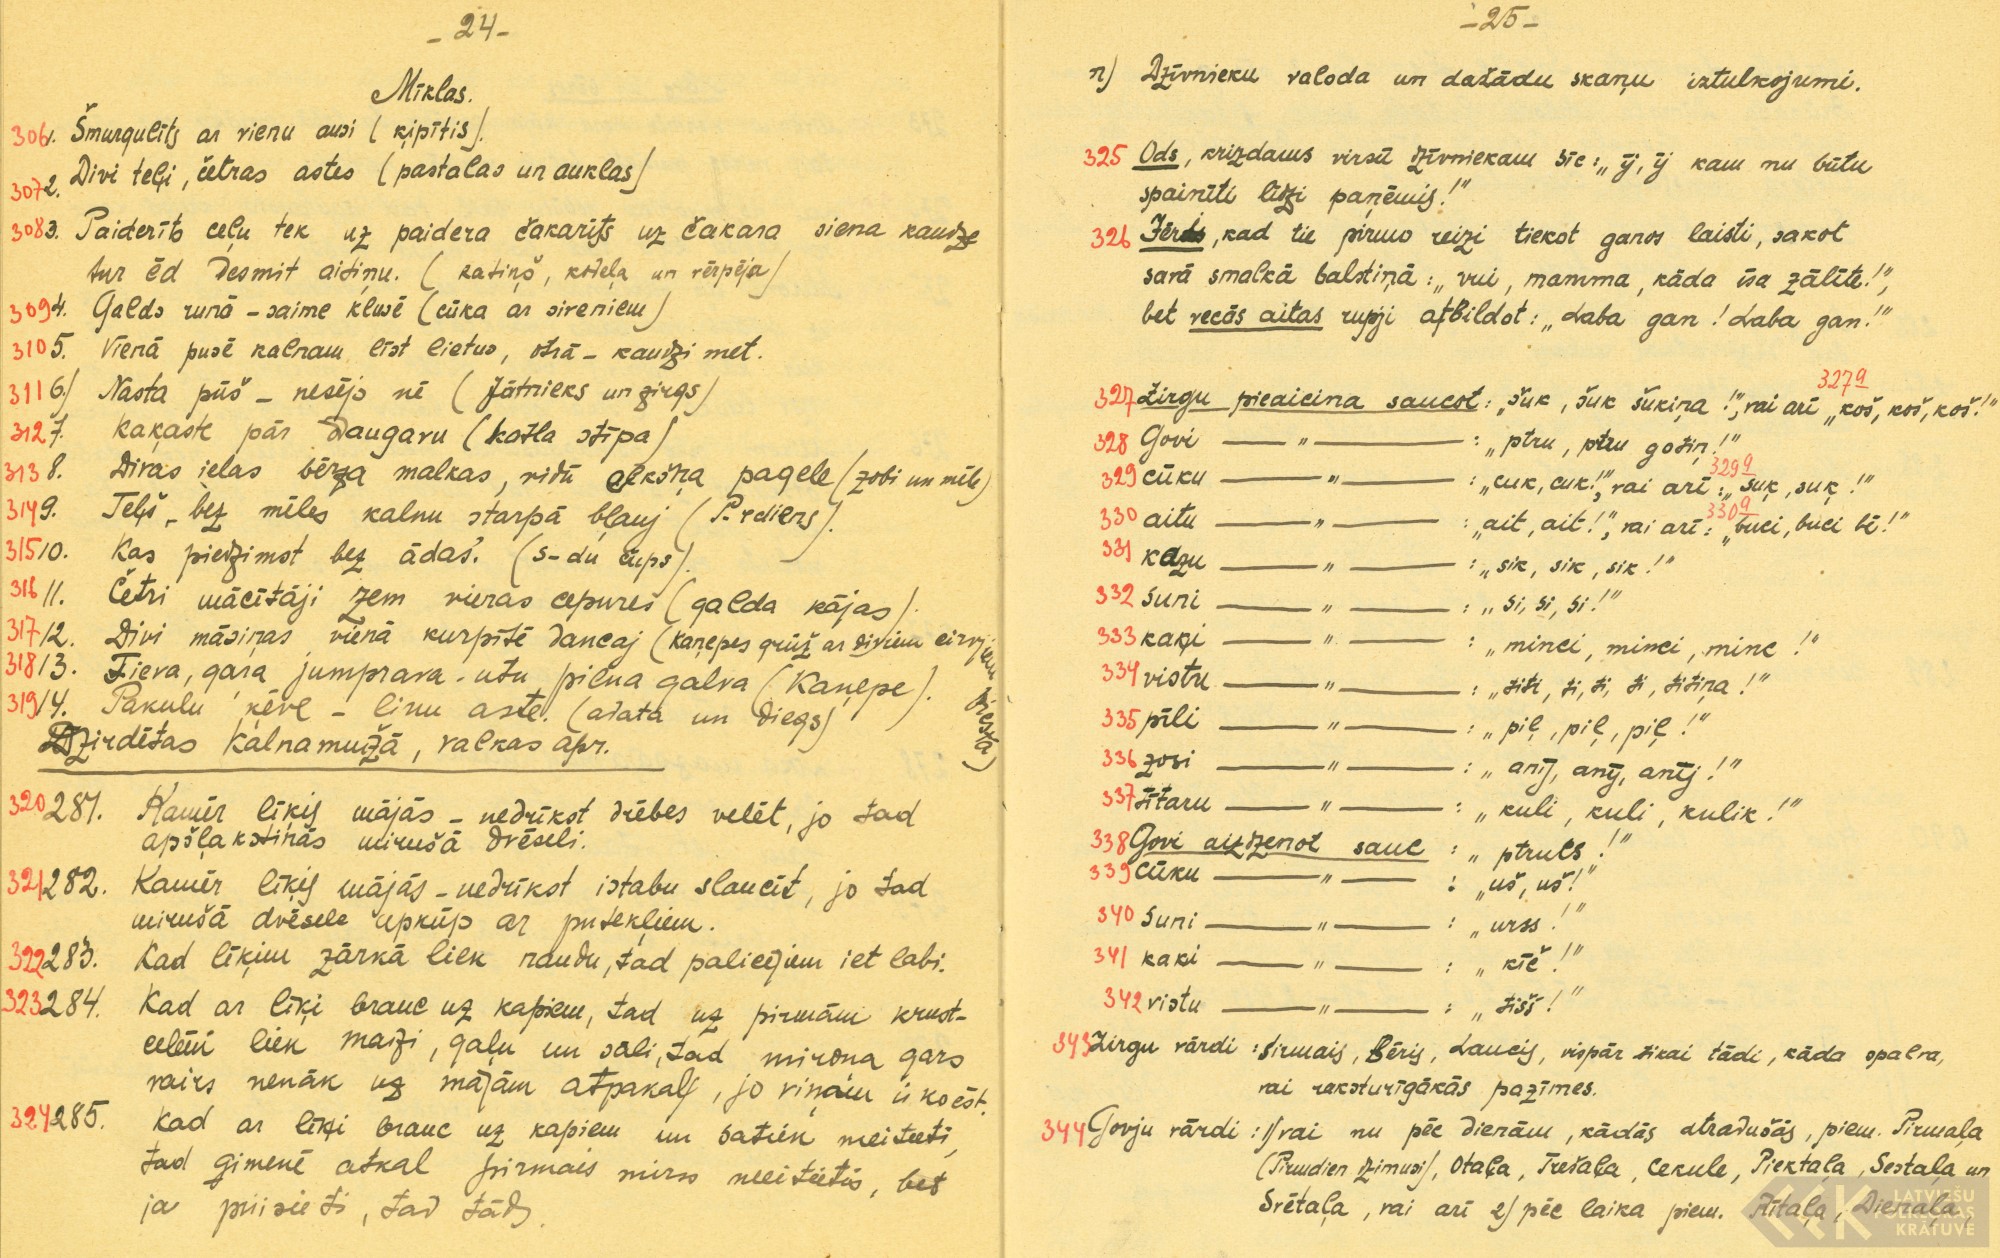 - 24 -
Mīklas.
306 1. Šmurgulīts ar vienu ausi (ķipītis).
307 2. Divi teļi, četras astes (pastalas un auklas)
308 3. Paiderīts ceļu tek uz paidera čakarīts uz čakara siena kaudze
tur ēd desmit aitiņu. (ratiņš, kodeļa un vērpēja)
309 4. Galds runā - saime klusē (cūka ar sivēniem)
310 5. Vienā pusē kalnam līst lietus, otrā - kaudzi met.
311 6) Nasta pūš - nesējs nē (Jātnieks un zirgs)
312 7. Kaķaste pār Daugavu (katla stīpa)
313 8. Divas ielas bērza malkas, vidū alkšņa pagale (zobi un mēle)
314 9. Teļš bez mēles kalnu starpā bļauj (P-rdiens).
315 10. Kas piedzimst bez ādas? (s-du čups).
316 11. Četri mācītāji zem vienas cepures (galda kājas).
317 12. Divi māsiņas vienā kurpītē dancaj (Kaņepes grūž ar diviem cirvjiem piestā)
318 13. Tieva, gara jumprava - utu pilna galva (Kaņepe).
319 14. Pakulu ķēve - linu aste. (adata un diegs)
Dzirdētas Kalnamuižā, Valkas apr.
320 281. Kamēr līķis mājās - nedrīkst drēbes velēt, jo tad
apšļakstinās mirušā dvēseli.
321 282. Kamēr līķis mājās - nedrīkst istabu slaucīt, jo tad
mirušā dvēsele apkūp ar putekļiem.
322 283. Kad līķim zārkā liek naudu, tad palicējiem iet labi.
323 284. Kad ar līķi brauc uz kapiem, tad uz pirmām krust-
celēm liek maizi, gaļu un sāli, tad mirona gars
vairs nenāk uz mājām atpakaļ, jo viņam ir ko ēst.
324 285. Kad ar līķi brauc uz kapiem un satiek meitieti,
tad ģimenē atkal pirmais mirs meitietis, bet
ja puisieti, tad tāds.
- 25 -
n) Dzīvnieku valoda un dažādu skaņu iztulkojumi.
325 Ods, krizdams virsū dzīvniekam sīc: „īj, īj kam nu būtu
spainīti līdzi paņēmis!"
326 Jērus, kad tie pirmo reizi tiekot ganos laisti, sakot
savā smalkā balstiņā: „vui, mamma, kāda īsa zālīte!",
bet vecās aitas rupji atbildot: „Laba gan! Laba gan!"
327a
327 Zirgu pieaicina saucot: „šuk, šuk šukiņa!", vai arī „koš, koš, koš!"
328 Govi — " — : „ptru, ptru gotiņ!"
329a
329 cūku — " — : „cuk, cuk!", vai arī: „šuķ, suķ!"
330a
330 aitu — " — : „ait, ait!", vai arī: „buci, buci bē!"
331 kazu — " — : „sik, sik, sik!"
332 suni — " — : „si, si, si!"
333 kaķi — " — : „minci, minci, minc!"
334 vistu — " — : „titi, ti, ti, ti, titiņa!"
335 pīli — " — : „piļ, piļ, piļ!"
336 zosi — " — : „anīj, anīj, anīj!"
337 tītaru — " — : „kuli, kuli, kulik!"
338 Govi aizdzenot sauc : „ptruls!"
339 Cūku — " — : „uš, uš!"
340 suni — " — : „urss!"
341 kaķi — " — : „ķič!"
342 vistu — " — : „tišš!"
343 Zirgu vārdi: Sirmais, Bēris, Laucis, vispār tikai tādi, kāda spalva,
vai raksturīgākās pazīmes.
344 Govju vārdi: 1) vai nu pēc dienām, kādās atradušās, piem. Pirmaļa
(Pirmdien dzimusi), Otaļa, Trešaļa, Cekule, Piektaļa, Sestaļa un
Svētaļa, vai arī 2) pēc laika piem. Rītaļa, Dienaļa,
LATVIEŠU
FOLKLORAS
KRĀTUVE